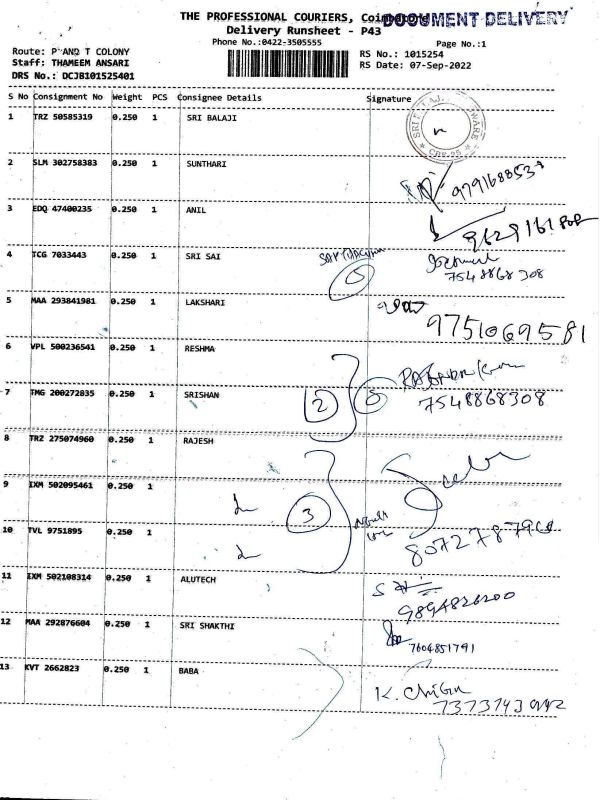 THE PROFESSIONAL COURIERS, Coimbatore
DOCUMENT DELIVERY
Delivery Runsheet - P43
Phone No.:0422-3505555
Page No.:1
Route: P AND T COLONY
RS No.: 1015254
Staff: THAMEEM ANSARI
RS Date: 07-Sep-2022
DRS No.: DCJB101525401
S No Consignment No Weight PCS Consignee Details Signature
1 TRZ 50585319 0.250 1 SRI BALAJI
2 SLM 302758383 0.250 1 SUNTHARI
3 EDQ 47400235 0.250 1 ANIL
4 TCG 7033443 0.250 1 SRI SAI
7548868308
5 MAA 293841981 0.250 1 LAKSHARI
9751069581
6 VPL 500236541 0.250 1 RESHMA
7 TMG 200272835 0.250 1 SRISHAN 2 5 7548868308
8 TRZ 275074960 0.250 1 RAJESH
9 IXM 502095461 0.250 1
3
10 TVL 9751895 0.250 1
11 IXM 502108314 0.250 1 ALUTECH
9894826200
12 MAA 292876604 0.250 1 SRI SHAKTHI
7604851791
13 KVT 2662823 0.250 1 BABA
K. Chigu